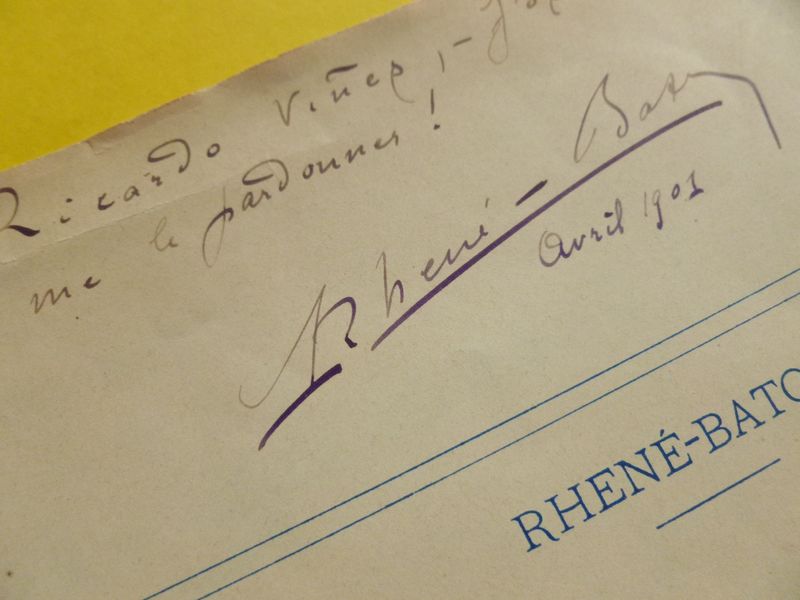 Ricardo Viñes, -
me le pardonner !
Rhené-Baton
Avril 1901
RHENÉ-BATO